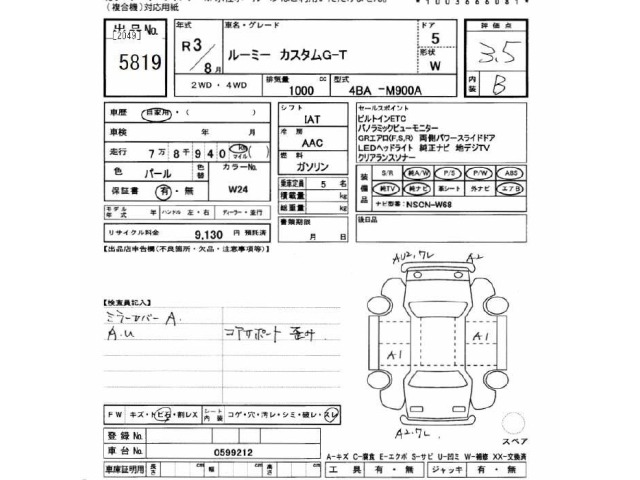 (複合機)対応用紙
*1003666081*
出品No. 年式 車名・グレード ドア 評価点
[2049] R3/8月 ルーミー カスタムG-T 5 3.5
5819 形状 W
2WD・4WD 排気量 1000 cc 型式 4BA -M900A 内装 B
車歴 自家用・( ) シフト IAT セールスポイント
車検 年 月 冷房 AAC ビルトインETC
パノラミックビューモニター
走行 7万8千940 km マイル 燃料 ガソリン GRエアロ(F,S,R) 両側パワースライドドア
LEDヘッドライト 純正ナビ 地デジTV
クリアランスソナー
色 パール 色替 カラーNo. W24 乗車定員 5 名
保証書 有・無 積載量 kg
総重量 kg
装備品 S/R 純A/W P/S P/W ABS
純TV 純ナビ 革シート 外ナビ エアB
ナビ型番:NSCN-W68
モデル年式 年 ハンドル 左・右 ディーラー・並行 書類期限 月 日 後日品
リサイクル料金 9,130 円 預託済
【出品店申告欄(不良箇所・欠品・注意事項等)】
AU2.ワレ A2
【検査員記入】
ミラーカバー A.
A.U コアサポート 歪み
A1 A1
FW キズ・ト ビ石・割レX シート内装 コゲ・穴・汚レ・シミ・破レ・スレ
A2.ワレ スペア
登録No.
車台No. 0599212
A-キズ C-腐食 E-エクボ S-サビ U-凹ミ W-補修 XX-交換済
車庫証明用 長さ cm 幅 cm 高さ cm 工具 有・無 ジャッキ 有・無